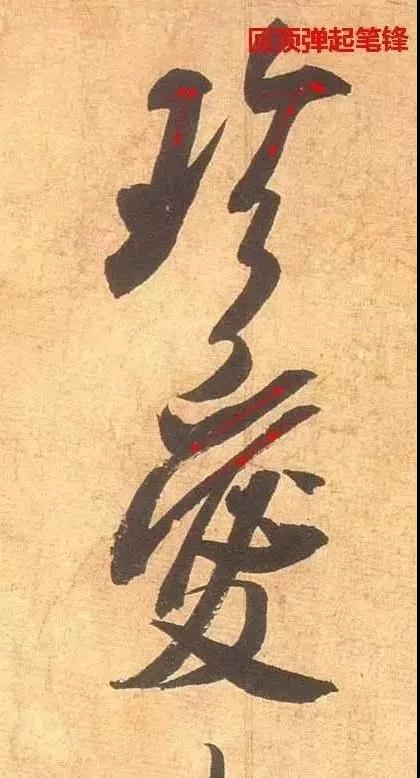 回顶弹起笔锋
珍愛